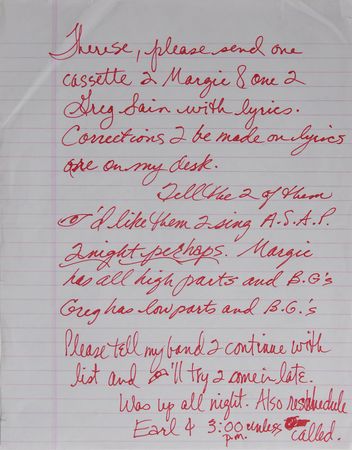 Therese, please send one
cassette 2 Margie & one 2
Greg Sain with lyrics.
Corrections 2 be made on lyrics
are on my desk.
Tell the 2 of them
👁'd like them 2 sing A.S.A.P.
2night perhaps. Margie
has all high parts and B.G's
Greg has low parts and B.G.'s
Please tell my band 2 continue with
list and 👁'll try 2 come in late.
Was up all night. Also reschedule
Earl 4 3:00 p.m. unless 👁 called.